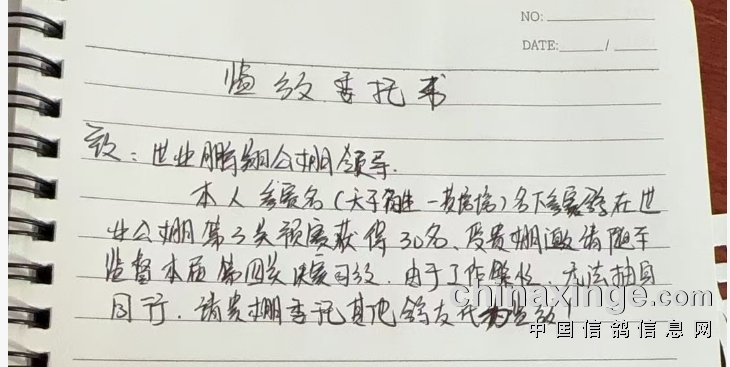 NO:
DATE: /
监放委托书
致：世业鹏翔公棚领导.
本人参赛名（天子 一黄 ）名下参赛鸽在世
业公棚第3关预赛获得30名、受贵棚邀请随车
监督本届第四关决赛司放. 由于工作繁忙, 无法抽身
同行. 请贵棚委托其他鸽友代为监放!
chinaxinge.com
中国信鸽信息网